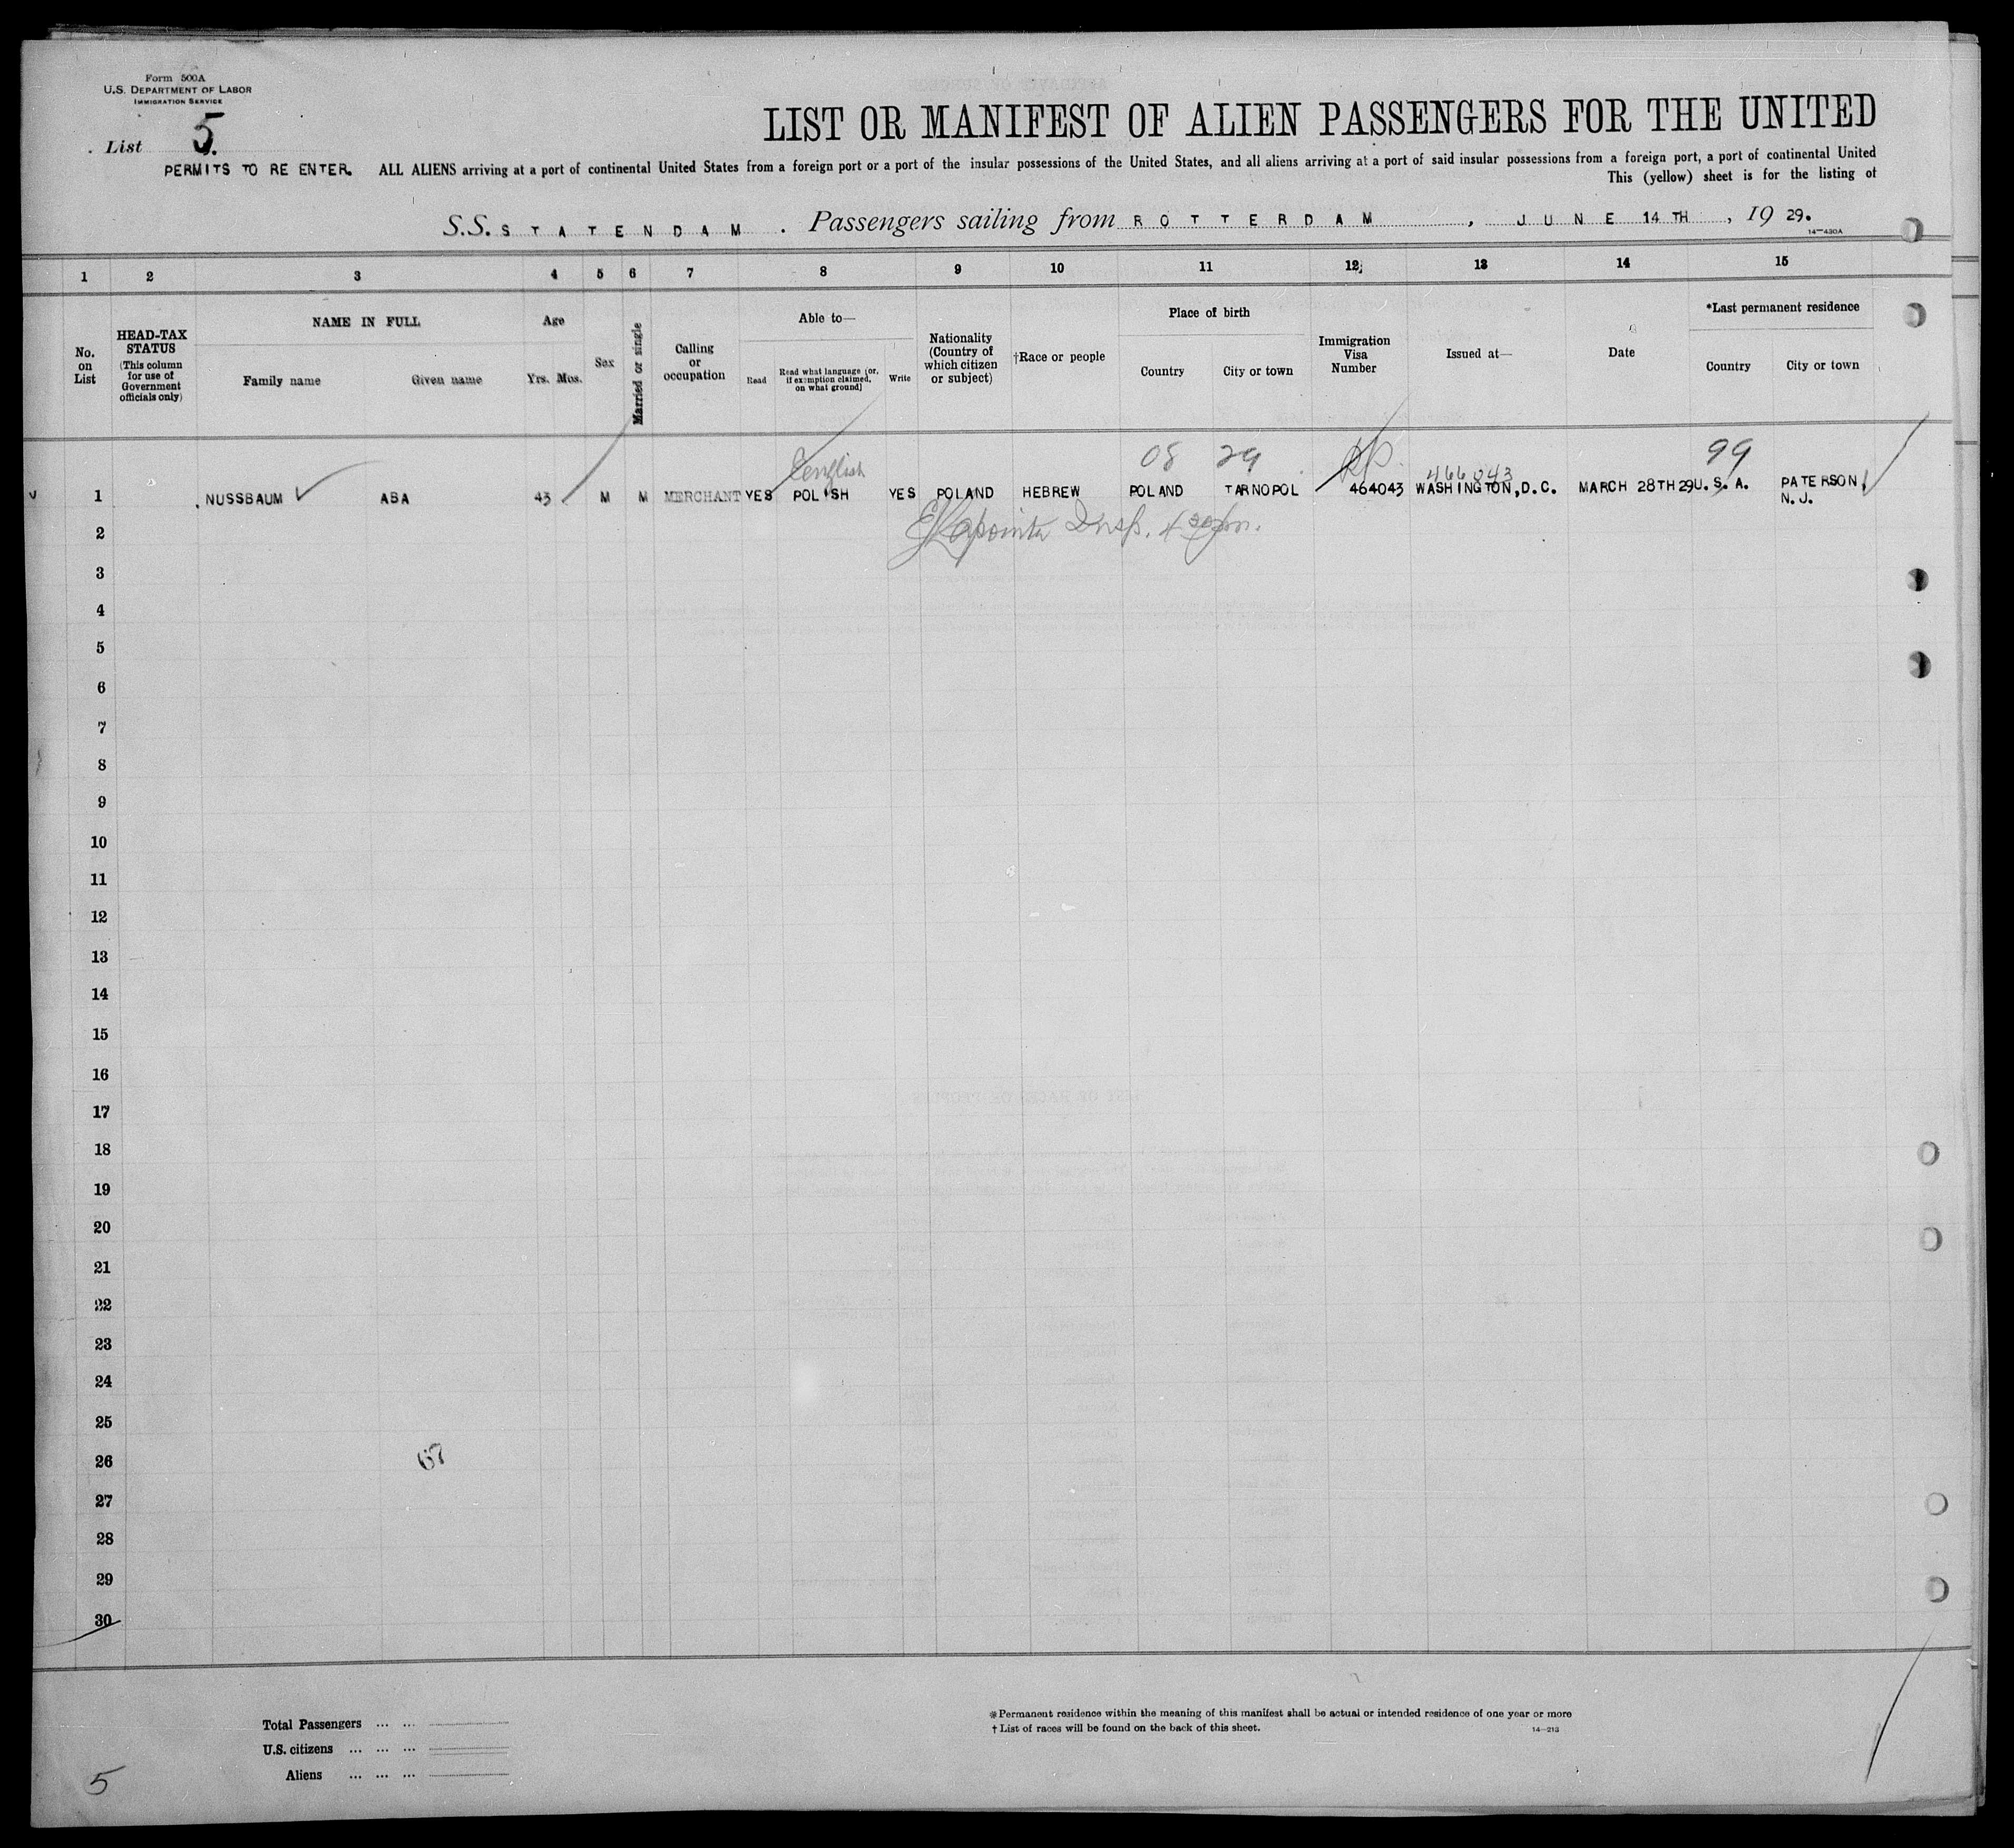 Form 500A
U.S. DEPARTMENT OF LABOR
IMMIGRATION SERVICE
List 5.
LIST OR MANIFEST OF ALIEN PASSENGERS FOR THE UNITED
PERMITS TO RE ENTER. ALL ALIENS arriving at a port of continental United States from a foreign port or a port of the insular possessions of the United States, and all aliens arriving at a port of said insular possessions from a foreign port, a port of continental United
This (yellow) sheet is for the listing of
S.S. STATENDAM. Passengers sailing from ROTTERDAM, JUNE 14TH, 19 29.
14—430A
1 2 3 4 5 6 7 8 9 10 11 12 13 14 15
No. on List
HEAD-TAX STATUS (This column for use of Government officials only)
NAME IN FULL
Family name Given name
Age
Yrs. Mos.
Sex
Married or single
Calling or occupation
Able to—
Read
Read what language (or, if exemption claimed, on what ground)
Write
Nationality (Country of which citizen or subject)
†Race or people
Place of birth
Country City or town
Immigration Visa Number
Issued at—
Date
*Last permanent residence
Country City or town
English 08 29 RP. 466043 99
1 NUSSBAUM ABA 43 M M MERCHANT YES POLISH YES POLAND HEBREW POLAND TARNOPOL 464043 WASHINGTON, D.C. MARCH 28TH 29 U.S.A. PATERSON,
N.J.
2 Insp.
3
4
5
6
7
8
9
10
11
12
13
14
15
16
17
18
19
20
21
22
23
24
25
26 67
27
28
29
30
Total Passengers ... ...
U.S. citizens ... ... ...
Aliens ... ... ...
*Permanent residence within the meaning of this manifest shall be actual or intended residence of one year or more
†List of races will be found on the back of this sheet.
14—213
5